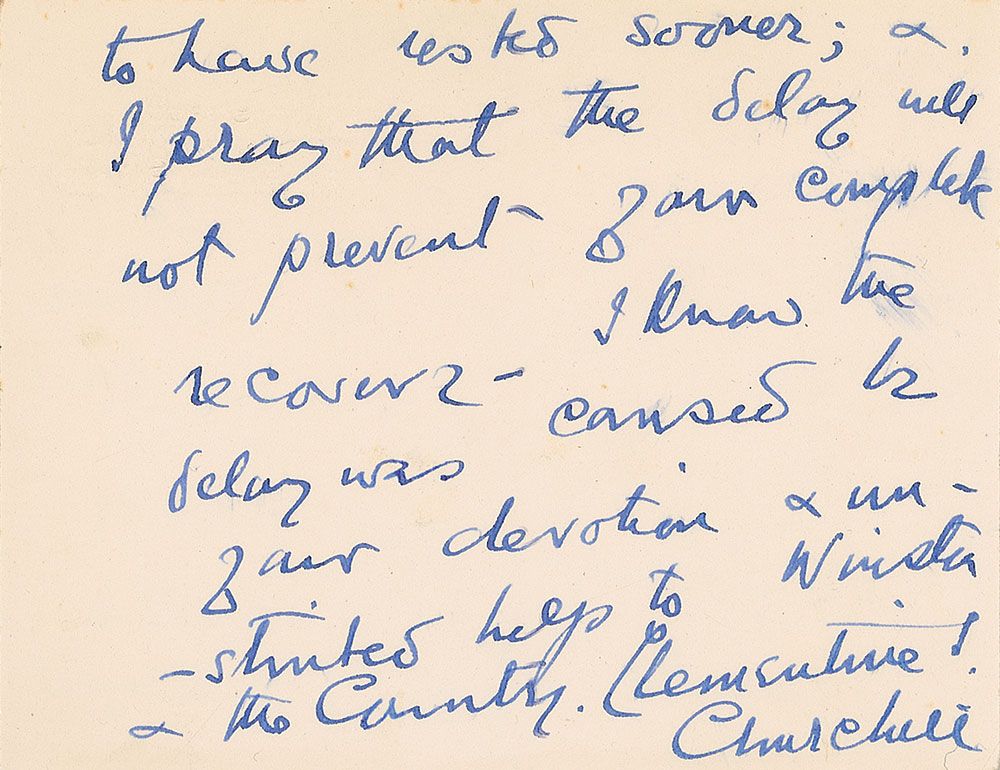 to have rested sooner; &
I pray that the delay will
not prevent your complete
recovery - I know the
delay was caused by
your devotion & un-
-stinted help to Winston
& the Country. Clementine S.
Churchill